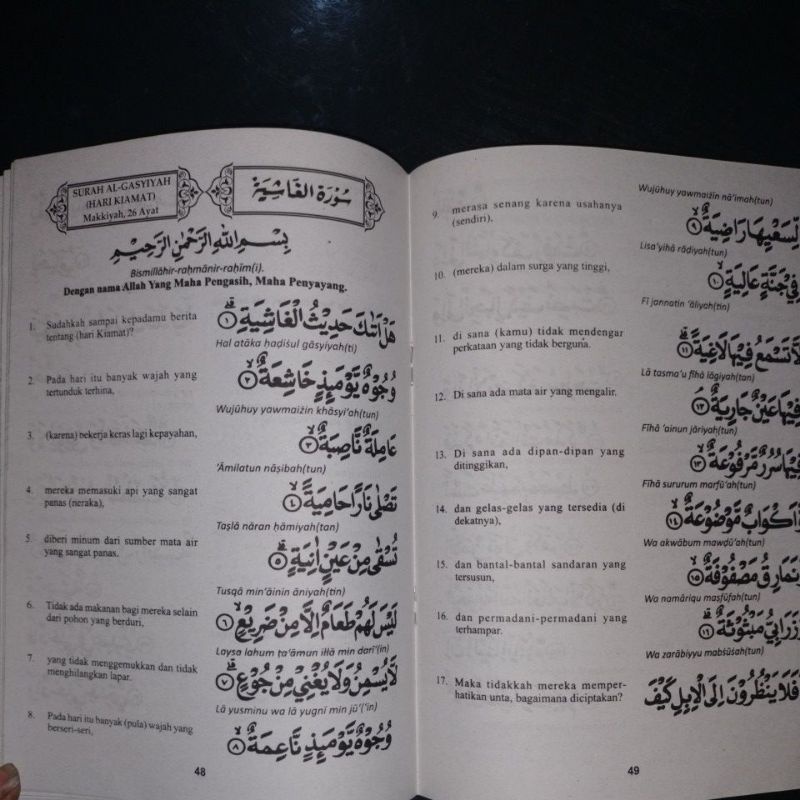 SURAH AL-GASYIYAH
(HARI KIAMAT)
Makkiyah, 26 Ayat
سُوْرَةُ الْغَاشِيَةِ
بِسْمِ اللّٰهِ الرَّحْمٰنِ الرَّحِيْمِ
Bismillāhir-raḥmānir-raḥīm(i).
Dengan nama Allah Yang Maha Pengasih, Maha Penyayang.
1. Sudahkah sampai kepadamu berita
tentang (hari Kiamat)?
هَلْ اَتٰىكَ حَدِيْثُ الْغَاشِيَةِۗ ۝١
Hal atāka ḥadīṡul gāsyiyah(ti)
2. Pada hari itu banyak wajah yang
tertunduk terhina,
وُجُوْهٌ يَّوْمَىِٕذٍ خَاشِعَةٌ ۙ ۝٢
Wujūhuy yawmaiżin khāsyi'ah(tun)
3. (karena) bekerja keras lagi kepayahan,
عَامِلَةٌ نَّاصِبَةٌ ۙ ۝٣
'Āmilatun nāṣibah(tun)
4. mereka memasuki api yang sangat
panas (neraka),
تَصْلٰى نَارًا حَامِيَةً ۙ ۝٤
Taṣlā nāran ḥāmiyah(tan)
5. diberi minum dari sumber mata air
yang sangat panas.
تُسْقٰى مِنْ عَيْنٍ اٰنِيَةٍ ۗ ۝٥
Tusqā min'āinin āniyah(tin)
6. Tidak ada makanan bagi mereka selain
dari pohon yang berduri,
لَيْسَ لَهُمْ طَعَامٌ اِلَّا مِنْ ضَرِيْعٍ ۙ ۝٦
Laysa lahum ṭa'āmun illā min darī'(in)
7. yang tidak menggemukkan dan tidak
menghilangkan lapar.
لَّا يُسْمِنُ وَلَا يُغْنِيْ مِنْ جُوْعٍ ۗ ۝٧
Lā yusminu wa lā yugnī min jū'('in)
8. Pada hari itu banyak (pula) wajah yang
berseri-seri,
وُجُوْهٌ يَّوْمَىِٕذٍ نَّاعِمَةٌ ۙ ۝٨
48
Wujūhuy yawmaiżin nā'imah(tun)
9. merasa senang karena usahanya
(sendiri),
لِّسَعْيِهَا رَاضِيَةٌ ۙ ۝٩
Lisa'yihā rāḍiyah(tun)
10. (mereka) dalam surga yang tinggi,
فِيْ جَنَّةٍ عَالِيَةٍ ۙ ۝١٠
Fī jannatin 'āliyah(tin)
11. di sana (kamu) tidak mendengar
perkataan yang tidak berguna.
لَّا تَسْمَعُ فِيْهَا لَاغِيَةً ۗ ۝١١
Lā tasma'u fīhā lāgiyah(tan)
12. Di sana ada mata air yang mengalir.
فِيْهَا عَيْنٌ جَارِيَةٌ ۘ ۝١٢
Fīhā 'ainun jāriyah(tun)
13. Di sana ada dipan-dipan yang
ditinggikan,
فِيْهَا سُرُرٌ مَّرْفُوْعَةٌ ۙ ۝١٣
Fīhā sururum marfū'ah(tun)
14. dan gelas-gelas yang tersedia (di
dekatnya),
وَّاَكْوَابٌ مَّوْضُوْعَةٌ ۙ ۝١٤
Wa akwābum mawḍū'ah(tun)
15. dan bantal-bantal sandaran yang
tersusun,
وَّنَمَارِقُ مَصْفُوْفَةٌ ۙ ۝١٥
Wa namāriqu maṣfūfah(tun)
16. dan permadani-permadani yang
terhampar.
وَّزَرَابِيُّ مَبْثُوْثَةٌ ۗ ۝١٦
Wa zarābiyyu mabṡūṡah(tun)
17. Maka tidakkah mereka memper-
hatikan unta, bagaimana diciptakan?
اَفَلَا يَنْظُرُوْنَ اِلَى الْاِبِلِ كَيْفَ
49